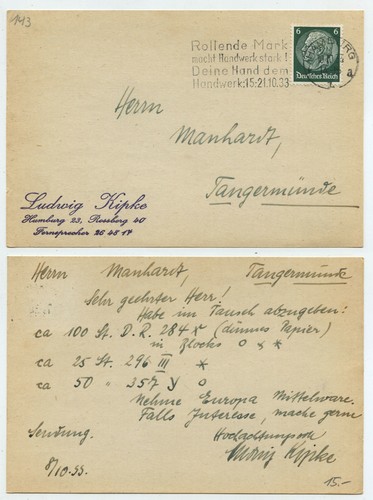 143
Rollende Mark
macht Handwerk stark!
Deine Hand dem
Handwerk: 15.-21.10.33
6 6
Deutsches Reich
Herrn
Manhardt,
Tangermünde
Ludwig Kipke
Hamburg 23, Rossberg 40
Fernsprecher 26 45 17
Herrn Manhardt, Tangermünde
Sehr geehrter Herr!
Habe im Tausch abzugeben:
ca 100 St. D.R. 284 x (dünnes Papier)
in Blocks o x *
ca 25 St. 296 III *
ca 50 " 357 y o
Nehme Europa Mittelware.
Falls Interesse, mache gern
Sendung. Hochachtungsvoll
Kipke
8/10.33.
15.-